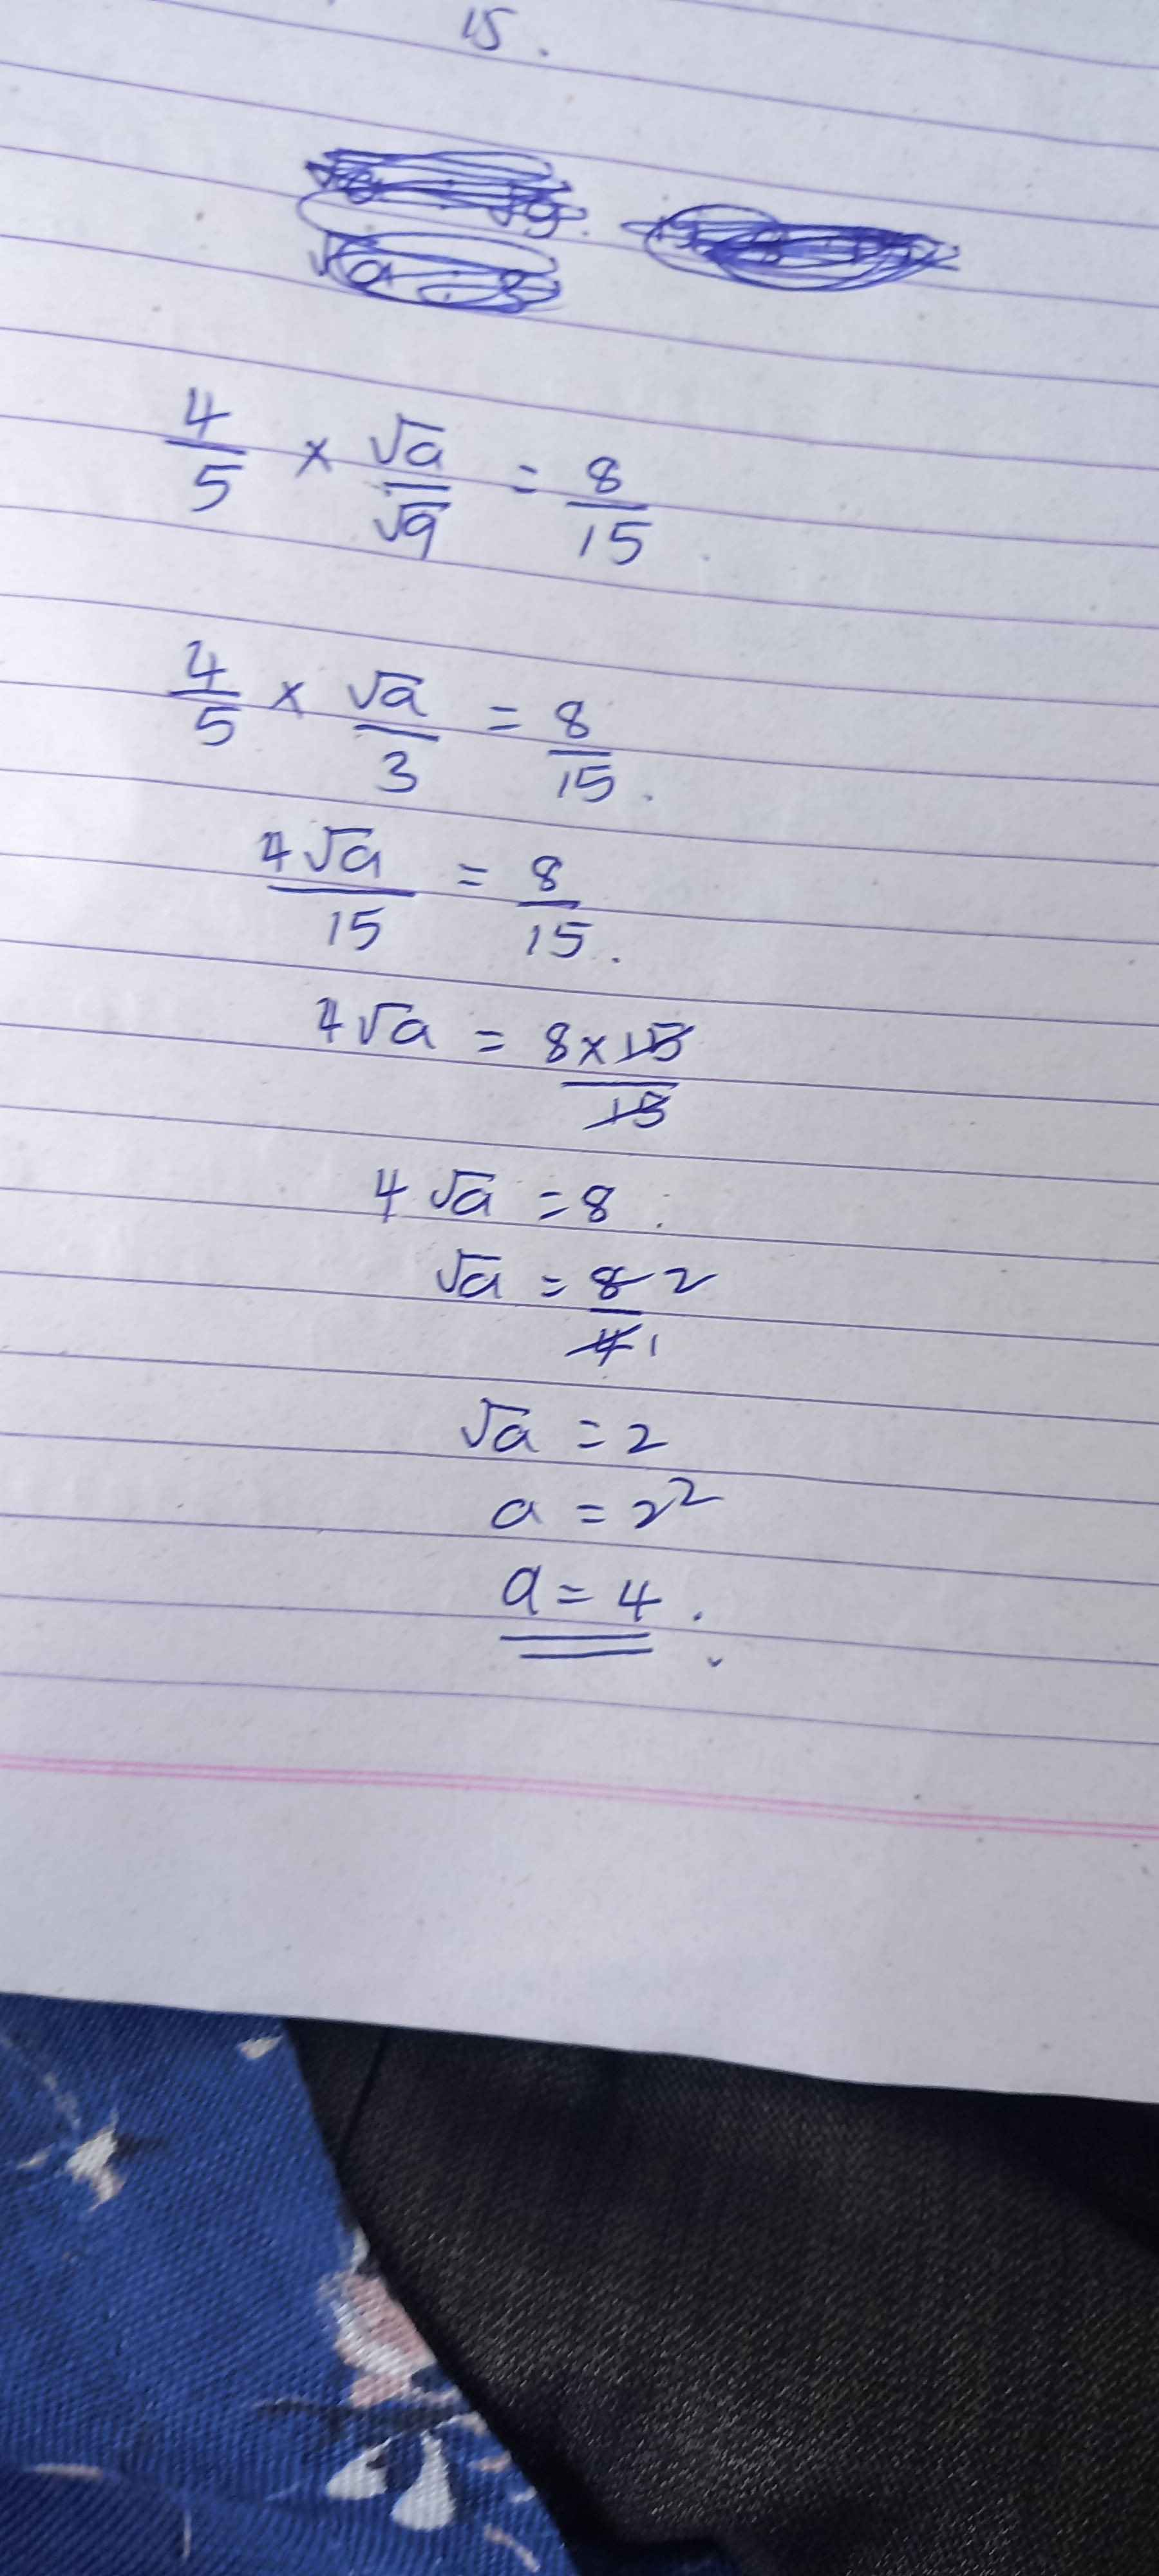 15.
4/5 × √a/√9 = 8/15
4/5 × √a/3 = 8/15.
4√a/15 = 8/15.
4√a = 8×15/15
4√a = 8.
√a = 8 2/4 1
√a = 2
a = 2²
a = 4.